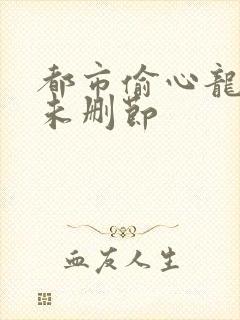 都市偷心龍
未删節
血友人生